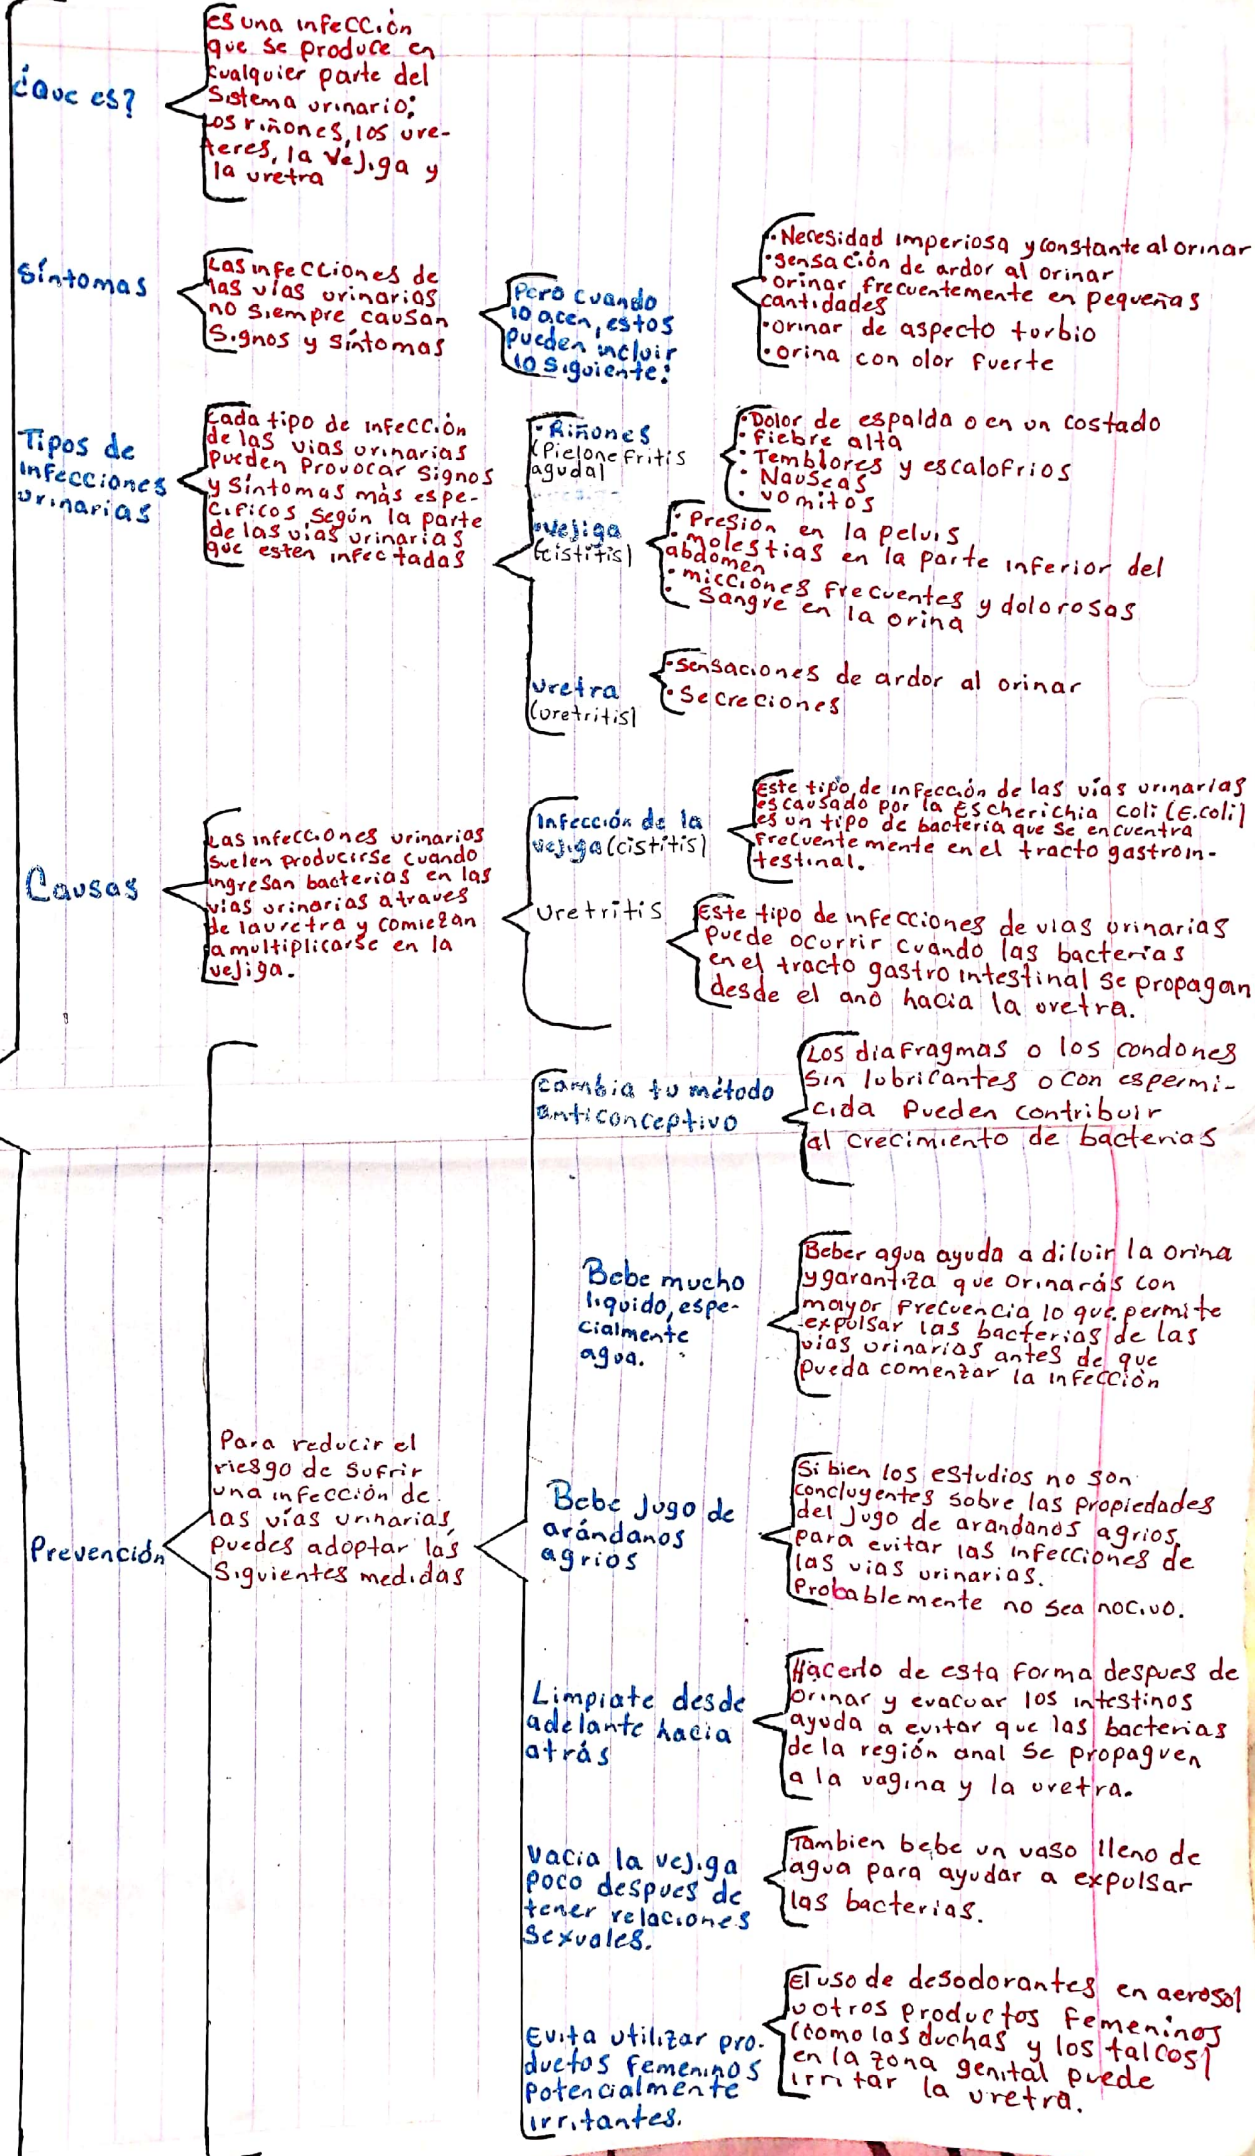 ¿Que es?
es una infección
que se produce en
cualquier parte del
Sistema urinario;
Los riñones, los ure-
teres, la vejiga y
la uretra
Síntomas
Las infecciones de
las vías urinarias
no siempre causan
Signos y síntomas
Pero cuando
lo acen, estos
pueden incluir
lo siguiente:
• Necesidad imperiosa y constante al orinar
• sensación de ardor al orinar
• orinar frecuentemente en pequeñas
cantidades
• orinar de aspecto turbio
• orina con olor fuerte
Tipos de
infecciones
urinarias
Cada tipo de infección
de las vias urinarias
pueden provocar signos
y síntomas más espe-
cificos, según la parte
de las vias urinarias
que esten infectadas
• Riñones
(Pielonefritis
aguda)
• Dolor de espalda o en un costado
• fiebre alta
• Temblores y escalofrios
• Nauseas
• vomitos
• vejiga
(cistitis)
• Presión en la pelvis
• molestias en la parte inferior del
abdomen
• micciones frecuentes y dolorosas
• Sangre en la orina
uretra
(uretritis)
• Sensaciones de ardor al orinar
• Secreciones
Causas
Las infecciones urinarias
suelen producirse cuando
ingresan bacterias en las
vias urinarias atraves
de la uretra y comiezan
a multiplicarse en la
vejiga.
Infección de la
vejiga (cistitis)
Este tipo de infección de las vías urinarias
es causado por la Escherichia coli (E.coli)
es un tipo de bacteria que se encuentra
frecuentemente en el tracto gastroin-
testinal.
Uretritis
Este tipo de infecciones de vias urinarias
puede ocurrir cuando las bacterias
en el tracto gastro intestinal se propagan
desde el ano hacia la uretra.
Prevención
Para reducir el
riesgo de sufrir
una infección de
las vías urinarias,
puedes adoptar las
Siguientes medidas
cambia tu método
anticonceptivo
Los diafragmas o los condones
sin lubricantes o con espermi-
cida pueden contribuir
al crecimiento de bacterias
Bebe mucho
liquido, espe-
cialmente
agua.
Beber agua ayuda a diluir la orina
y garantiza que orinarás con
mayor frecuencia lo que permite
expulsar las bacterias de las
vias urinarias antes de que
pueda comenzar la infección
Bebe jugo de
arándanos
agrios
Si bien los estudios no son
concluyentes sobre las propiedades
del jugo de arandanos agrios,
para evitar las infecciones de
las vias urinarias.
Probablemente no sea nocivo.
Limpiate desde
adelante hacia
atrás
Hacerlo de esta forma despues de
orinar y evacuar los intestinos
ayuda a evitar que las bacterias
de la región anal se propaguen
a la vagina y la uretra.
Vacia la vejiga
poco despues de
tener relaciones
sexuales.
Tambien bebe un vaso lleno de
agua para ayudar a expulsar
las bacterias.
Evita utilizar pro-
ductos femeninos
potencialmente
irritantes.
El uso de desodorantes en aerosol
u otros productos femeninos
(como las duchas y los talcos)
en la zona genital puede
irritar la uretra.